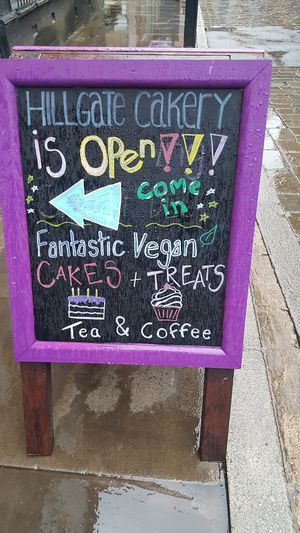 HILLGATE CAKERY
is OPEN!!!
come
in
Fantastic Vegan
CAKES + TREATS
Tea & Coffee